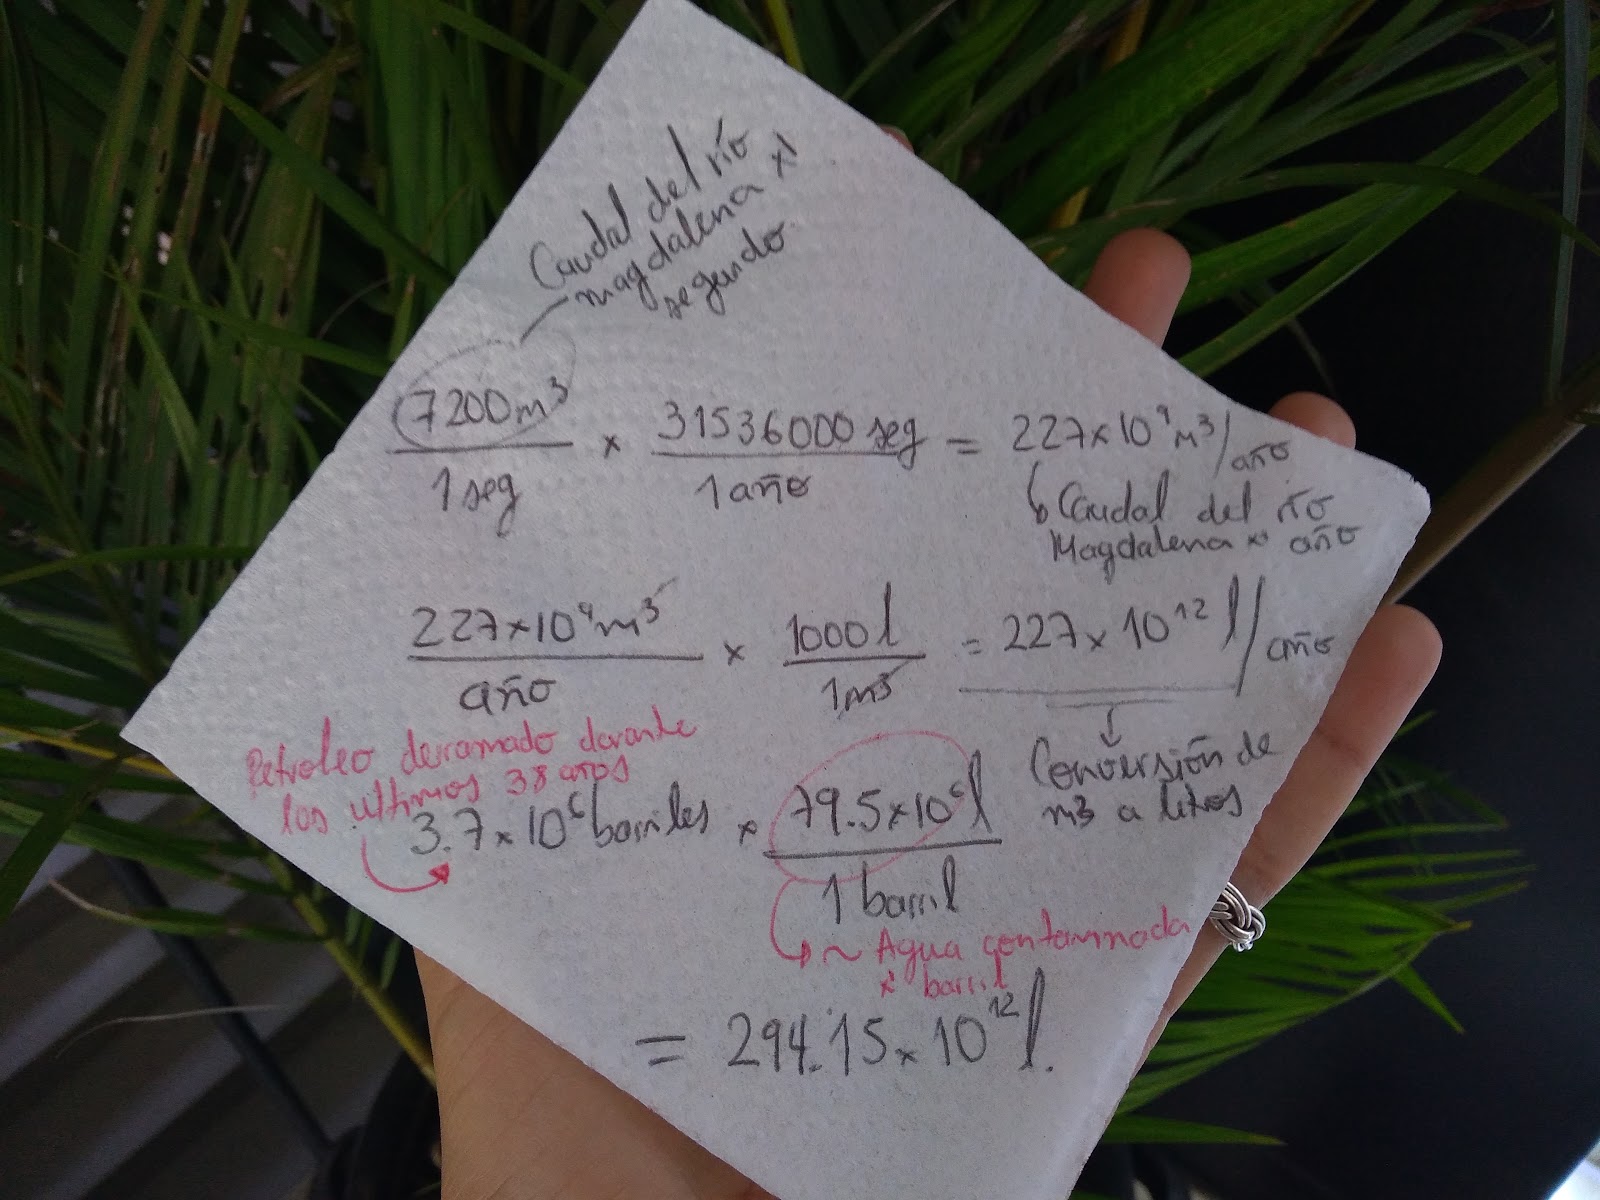 Caudal del río
magdalena x1
segundo
7200m³ x 31536000 seg = 227x10⁹ m³/año
1 seg 1 año
↳ Caudal del río
Magdalena x1 año
227x10⁹m³ x 1000 l = 227x10¹² l/año
año 1m³
Conversión de
m3 a litros
Petroleo derramado durante
los ultimos 38 años
3.7x10⁶ barriles x 79.5x10⁶ l
1 barril
~ Agua contaminada
x barril
= 294.15x10¹² l.